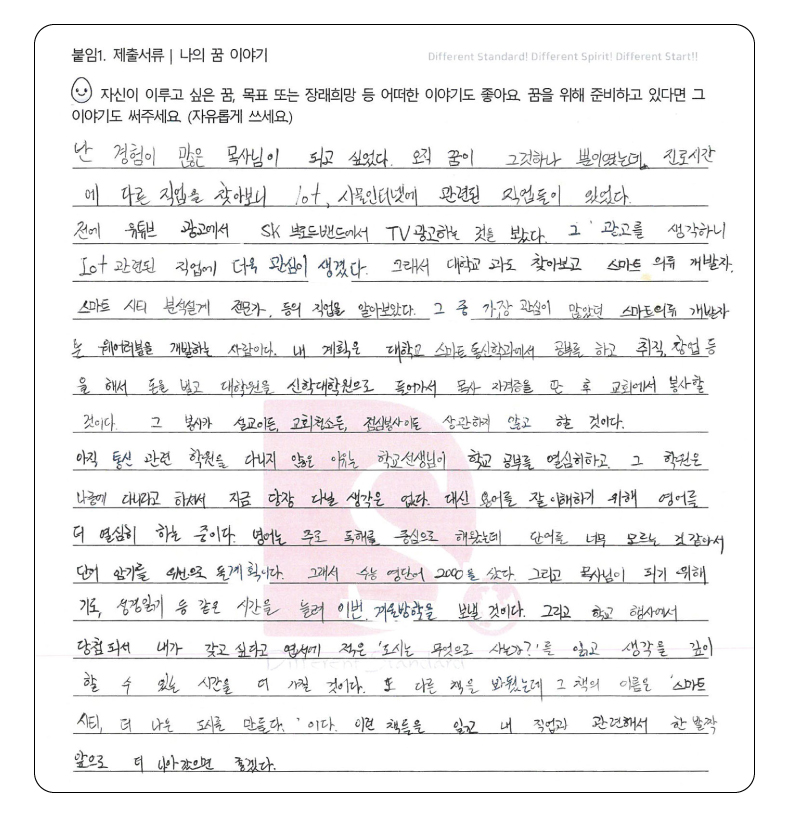 붙임1. 제출서류 | 나의 꿈 이야기
Different Standard! Different Spirit! Different Start!!
자신이 이루고 싶은 꿈, 목표 또는 장래희망 등 어떠한 이야기도 좋아요. 꿈을 위해 준비하고 있다면 그
이야기도 써주세요. (자유롭게 쓰세요.)
난 경험이 많은 목사님이 되고 싶었다. 오직 꿈이 그것하나 뿐이였는데, 진로시간
에 다른 직업을 찾아보니 Iot, 사물인터넷에 관련된 직업들이 있었다.
전에 유튜브 광고에서 SK 브로드밴드에서 TV광고하는 것을 보았다. 그 광고를 생각하니
Iot 관련된 직업에 더욱 관심이 생겼다. 그래서 대학교 과도 찾아보고 스마트 의류 개발자,
스마트 시티 분석설계 전문가, 등의 직업을 알아보았다. 그 중 가장 관심이 많았던 스마트의류 개발자
는 웨어러블을 개발하는 사람이다. 내 계획은 대학교 스마트통신학과에서 공부를 하고 취직, 창업 등
을 해서 돈을 벌고 대학원을 신학대학원으로 들어가서 목사 자격증을 딴 후 교회에서 봉사할
것이다. 그 봉사가 설교이든, 교회청소든, 점심봉사이든 상관하지 않고 할 것이다.
아직 통신 관련 학원을 다니지 않은 이유는 학교선생님이 학교 공부를 열심히하고 그 학원은
나중에 다니라고 하셔서 지금 당장 다닐 생각은 없다. 대신 용어를 잘 이해하기 위해 영어를
더 열심히 하는 중이다. 영어는 주로 독해를 중심으로 해왔는데 단어를 너무 모르는 것 같아서
단어 암기를 위선으로 둘계획이다. 그래서 수능 영단어 2000을 샀다. 그리고 목사님이 되기 위해
기도, 성경읽기 등 같은 시간을 늘려 이번 겨울방학을 보낼 것이다. 그리고 학교 행사에서
당첨되서 내가 갖고싶다고 엽서에 적은 '도시는 무엇으로 사는가?'를 읽고 생각을 깊이
할 수 있는 시간을 더 가질 것이다. 또 다른 책을 봐왔는데 그 책의 이름은 '스마트
시티, 더 나은 도시를 만들다.'이다. 이런 책들을 읽고 내 직업과 관련해서 한 발짝
앞으로 더 나아갔으면 좋겠다.
Different Standard